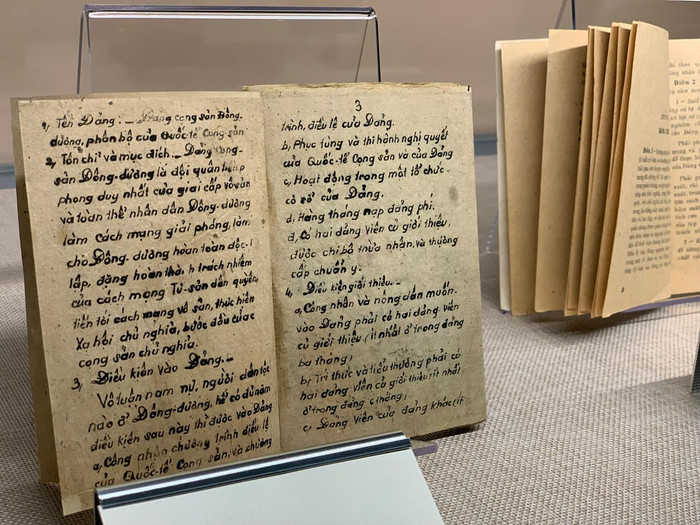 1, Tên Đảng: _ Đảng cộng sản Đông-
dương, phân bộ của Quốc-tế Cọng sản
2, Tôn chỉ và mục đích._ Đảng Cọng-
sản Đông-dương là đội quân tiên
phong duy nhất của giai cấp vô sản
và toàn thể nhân dân Đông-dương
làm cách mạng giải phóng, làm
cho Đông-dương hoàn toàn độc-l
lập, đặng hoàn thành trách nhiệm
của cách mạng Tư-sản dân quyền,
tiến tới cách mạng vô sản, thực hiện
Xa hội chủ nghĩa, bước đầu của c
cọng sản chủ nghĩa.
3, Điều kiện vào Đảng._
Vô luận nam nữ, người dân tộc
nào ở Đông-dương, hễ có đủ năm
điều kiện sau này thì được vào Đảng
a, Công nhận chương trình điều lệ
của Quốc-tế Cọng sản, và chương
3
trình, điều lệ của Đảng.
b, Phục tùng và thi hành nghị quyết
của Quốc-tế Cọng sản và của Đảng
c, Hoạt động trong một tổ chức-
cơ sở của Đảng.
d, Hàng tháng nạp đảng phí.
đ, Có hai đảng viên cũ giới thiệu,
được chi bộ thừa nhận, và thượng
cấp chuẩn y.
4, Điều kiện giới thiệu.
a, Công nhân và nông dân muốn
vào Đảng phải có hai đảng viên
cũ giới thiệu (ít nhất ở trong đảng
ba tháng)
b, Trí thức và tiểu thương phải có
hai đảng viên cũ giới thiệu (ít nhất
ở trong đảng 6 tháng)
c, Đảng viên của đảng khác (ít
Điều 2